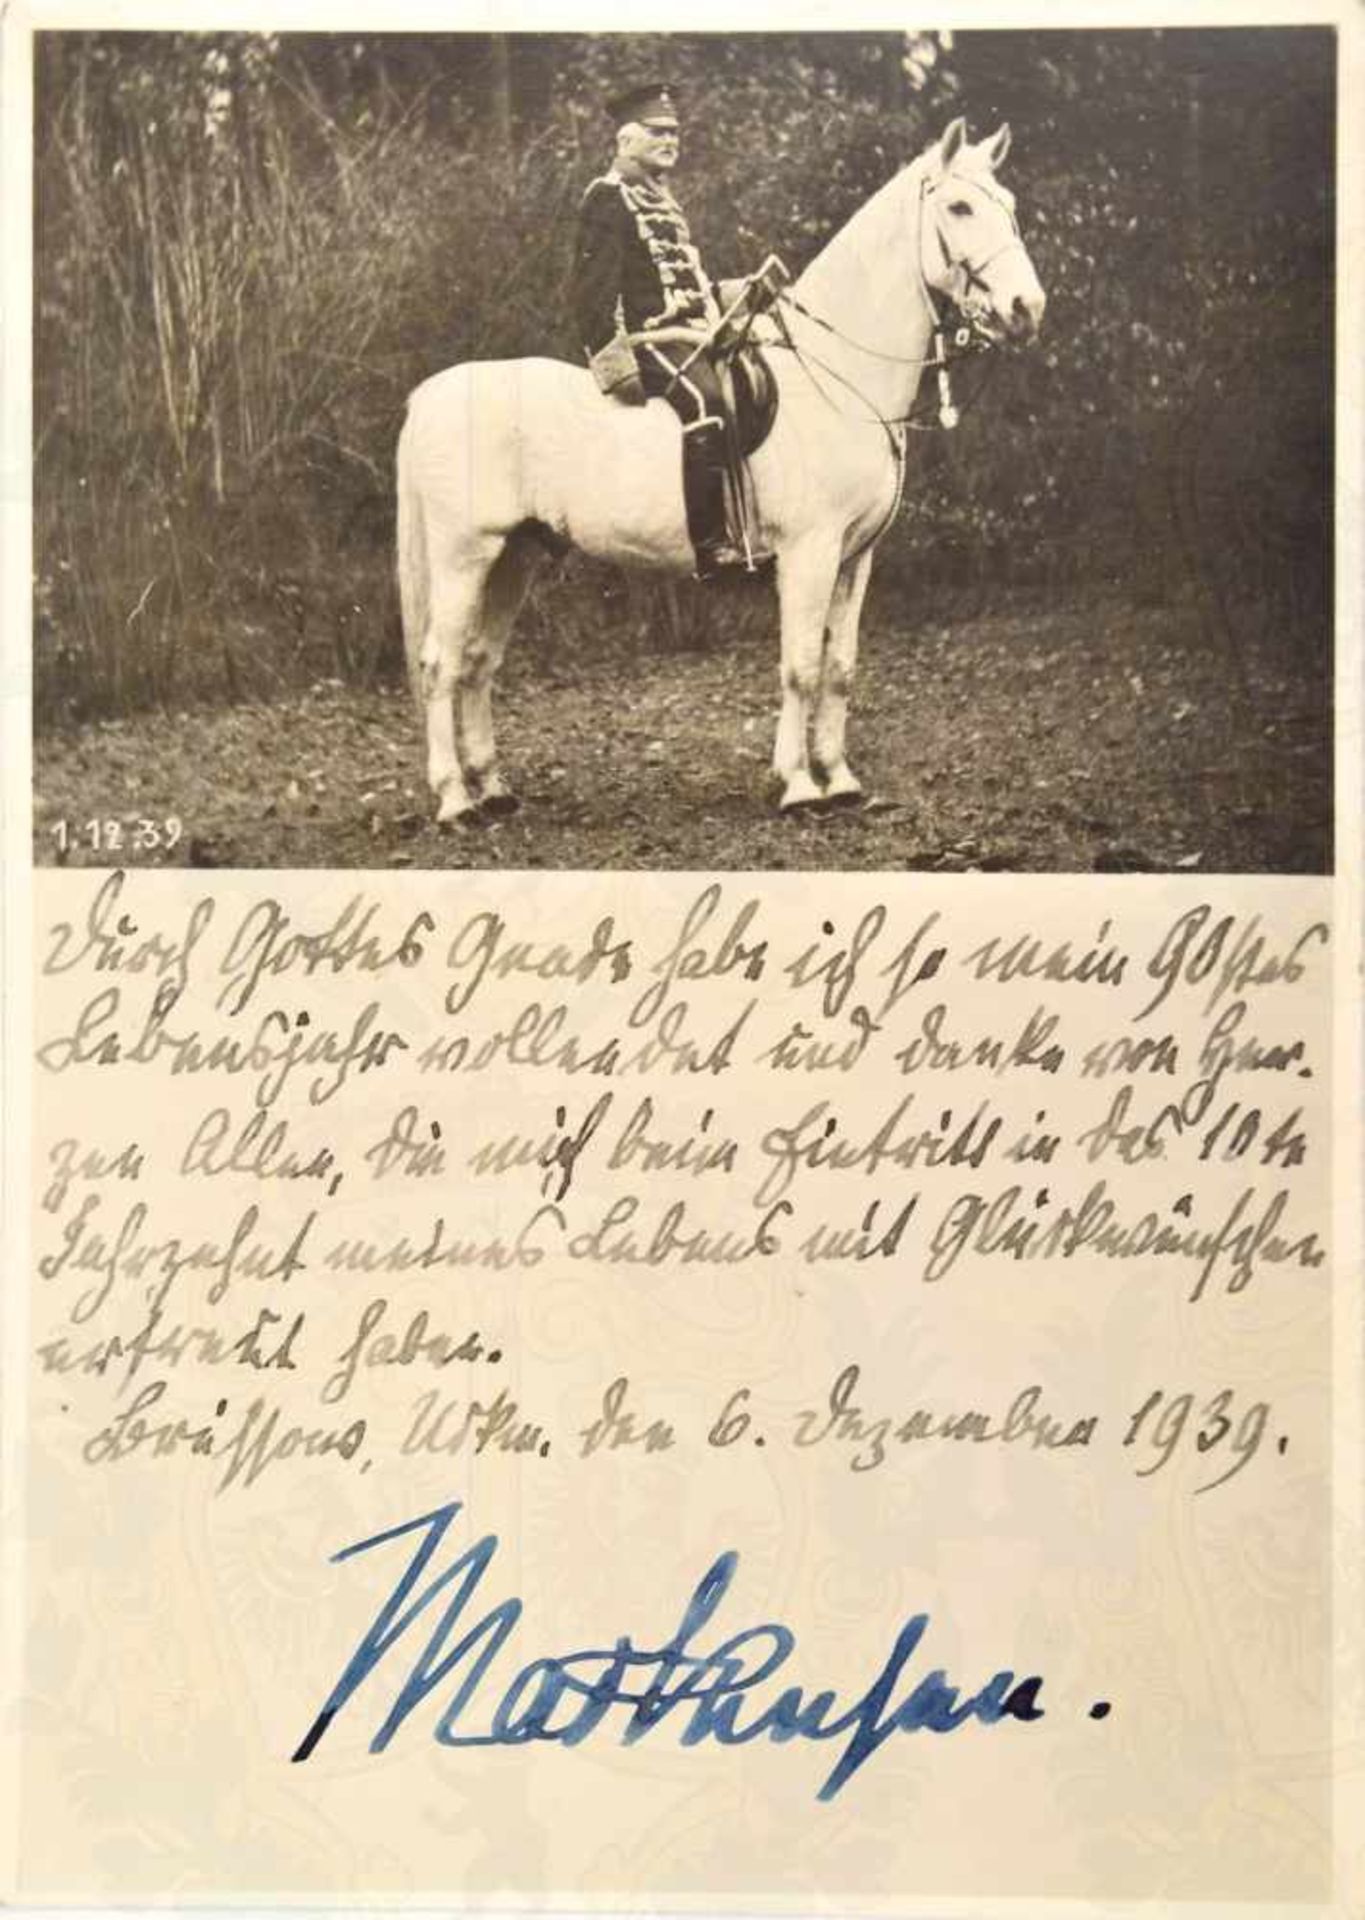 1.12.39
Durch Gottes Gnade habe ich so mein 90stes
Lebensjahr vollendet und danke von Her-
zen Allen, die mich beim Eintritt in das 10te
Jahrzehnt meines Lebens mit Glückwünschen
erfreut haben.
Brüssow, Uckm. den 6. Dezember 1939.
Mackensen.